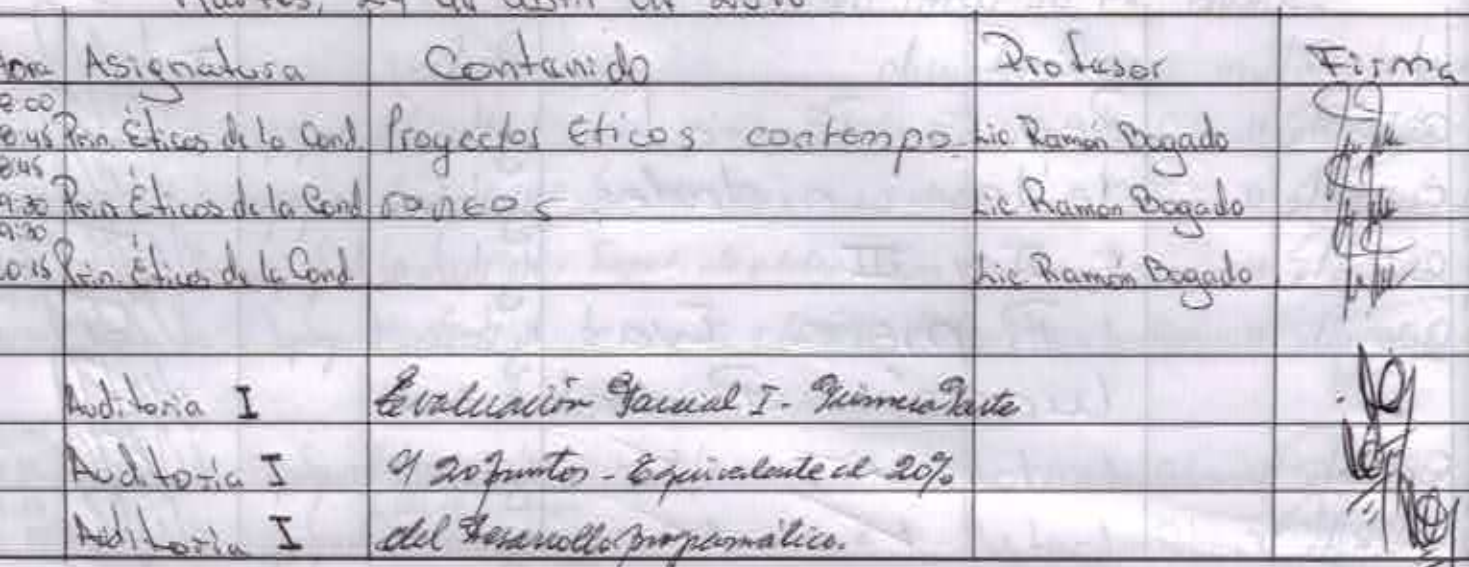 Martes, 24 de abril de
Hora Asignatura Contenido Profesor Firma
8:00
8:45 Prin. Éticos de la Cond. Proyectos éticos contempo Lic. Ramón Bogado
8:45
9:30 Prin. Éticos de la Cond ráneos Lic. Ramón Bogado
9:30
10:15 Prin. Éticos de la Cond. Lic. Ramón Bogado
Auditoria I Evaluación Parcial I - Primera Parte
Auditoría I 20 puntos - Equivalente al 20%
Auditoría I del Desarrollo programático.